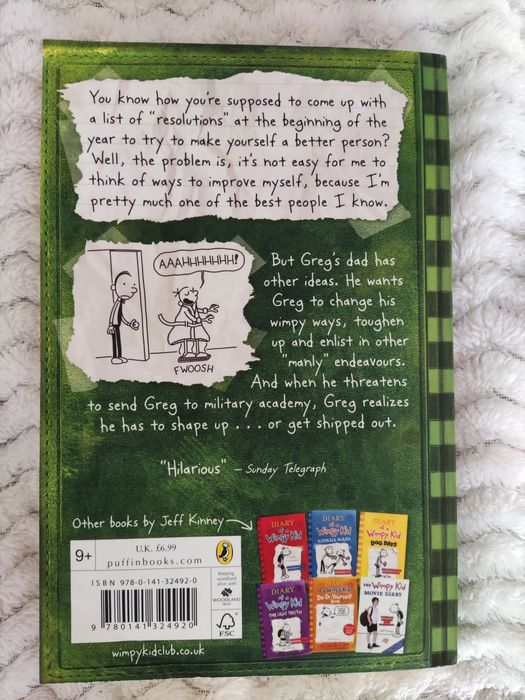 You know how you're supposed to come up with
a list of "resolutions" at the beginning of the
year to try to make yourself a better person?
Well, the problem is, it's not easy for me to
think of ways to improve myself, because I'm
pretty much one of the best people I know.
AAAHHHHHHH!
FWOOSH
But Greg's dad has
other ideas. He wants
Greg to change his
wimpy ways, toughen
up and enlist in other
"manly" endeavours.
And when he threatens
to send Greg to military academy, Greg realizes
he has to shape up . . . or get shipped out.
"Hilarious" – Sunday Telegraph
Other books by Jeff Kinney
9+
U.K. £6.99
puffinbooks.com
ISBN 978-0-141-32492-0
9 780141 324920
wimpykidclub.co.uk
Keeping
woodland
alive with
WOODLAND
TRUST
FSC
DIARY
of a
Wimpy Kid
DIARY
of a
Wimpy Kid
RODRICK RULES
DIARY
of a
Wimpy Kid
DOG DAYS
DIARY
of a
Wimpy Kid
THE UGLY TRUTH
Wimpy Kid
Do-It-Yourself
Book
THE
Wimpy Kid
MOVIE DIARY